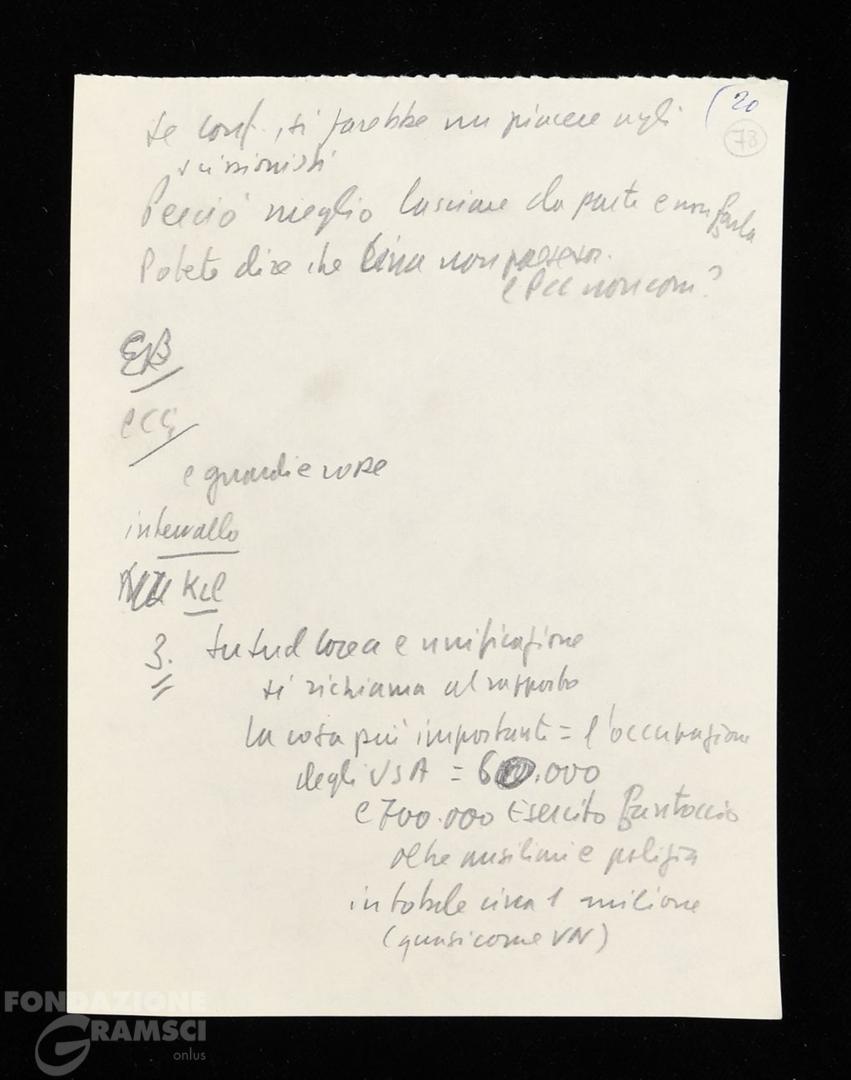 (20
78
se conf., si farebbe un piacere agli
scissionisti
Perciò meglio lasciare da parte e non farla
Potete dire che Cina non
e PCC non com?
EB
e guardie rosse
intervallo
Kil
3. su Sud Corea e unificazione
si richiama al rapporto
la cosa più importante = l'occupazione
degli USA = 60.000
e 700.000 Esercito fantoccio
oltre ausiliari e polizia
in totale circa 1 milione
(quasi come VN)
FONDAZIONE
GRAMSCI
onlus